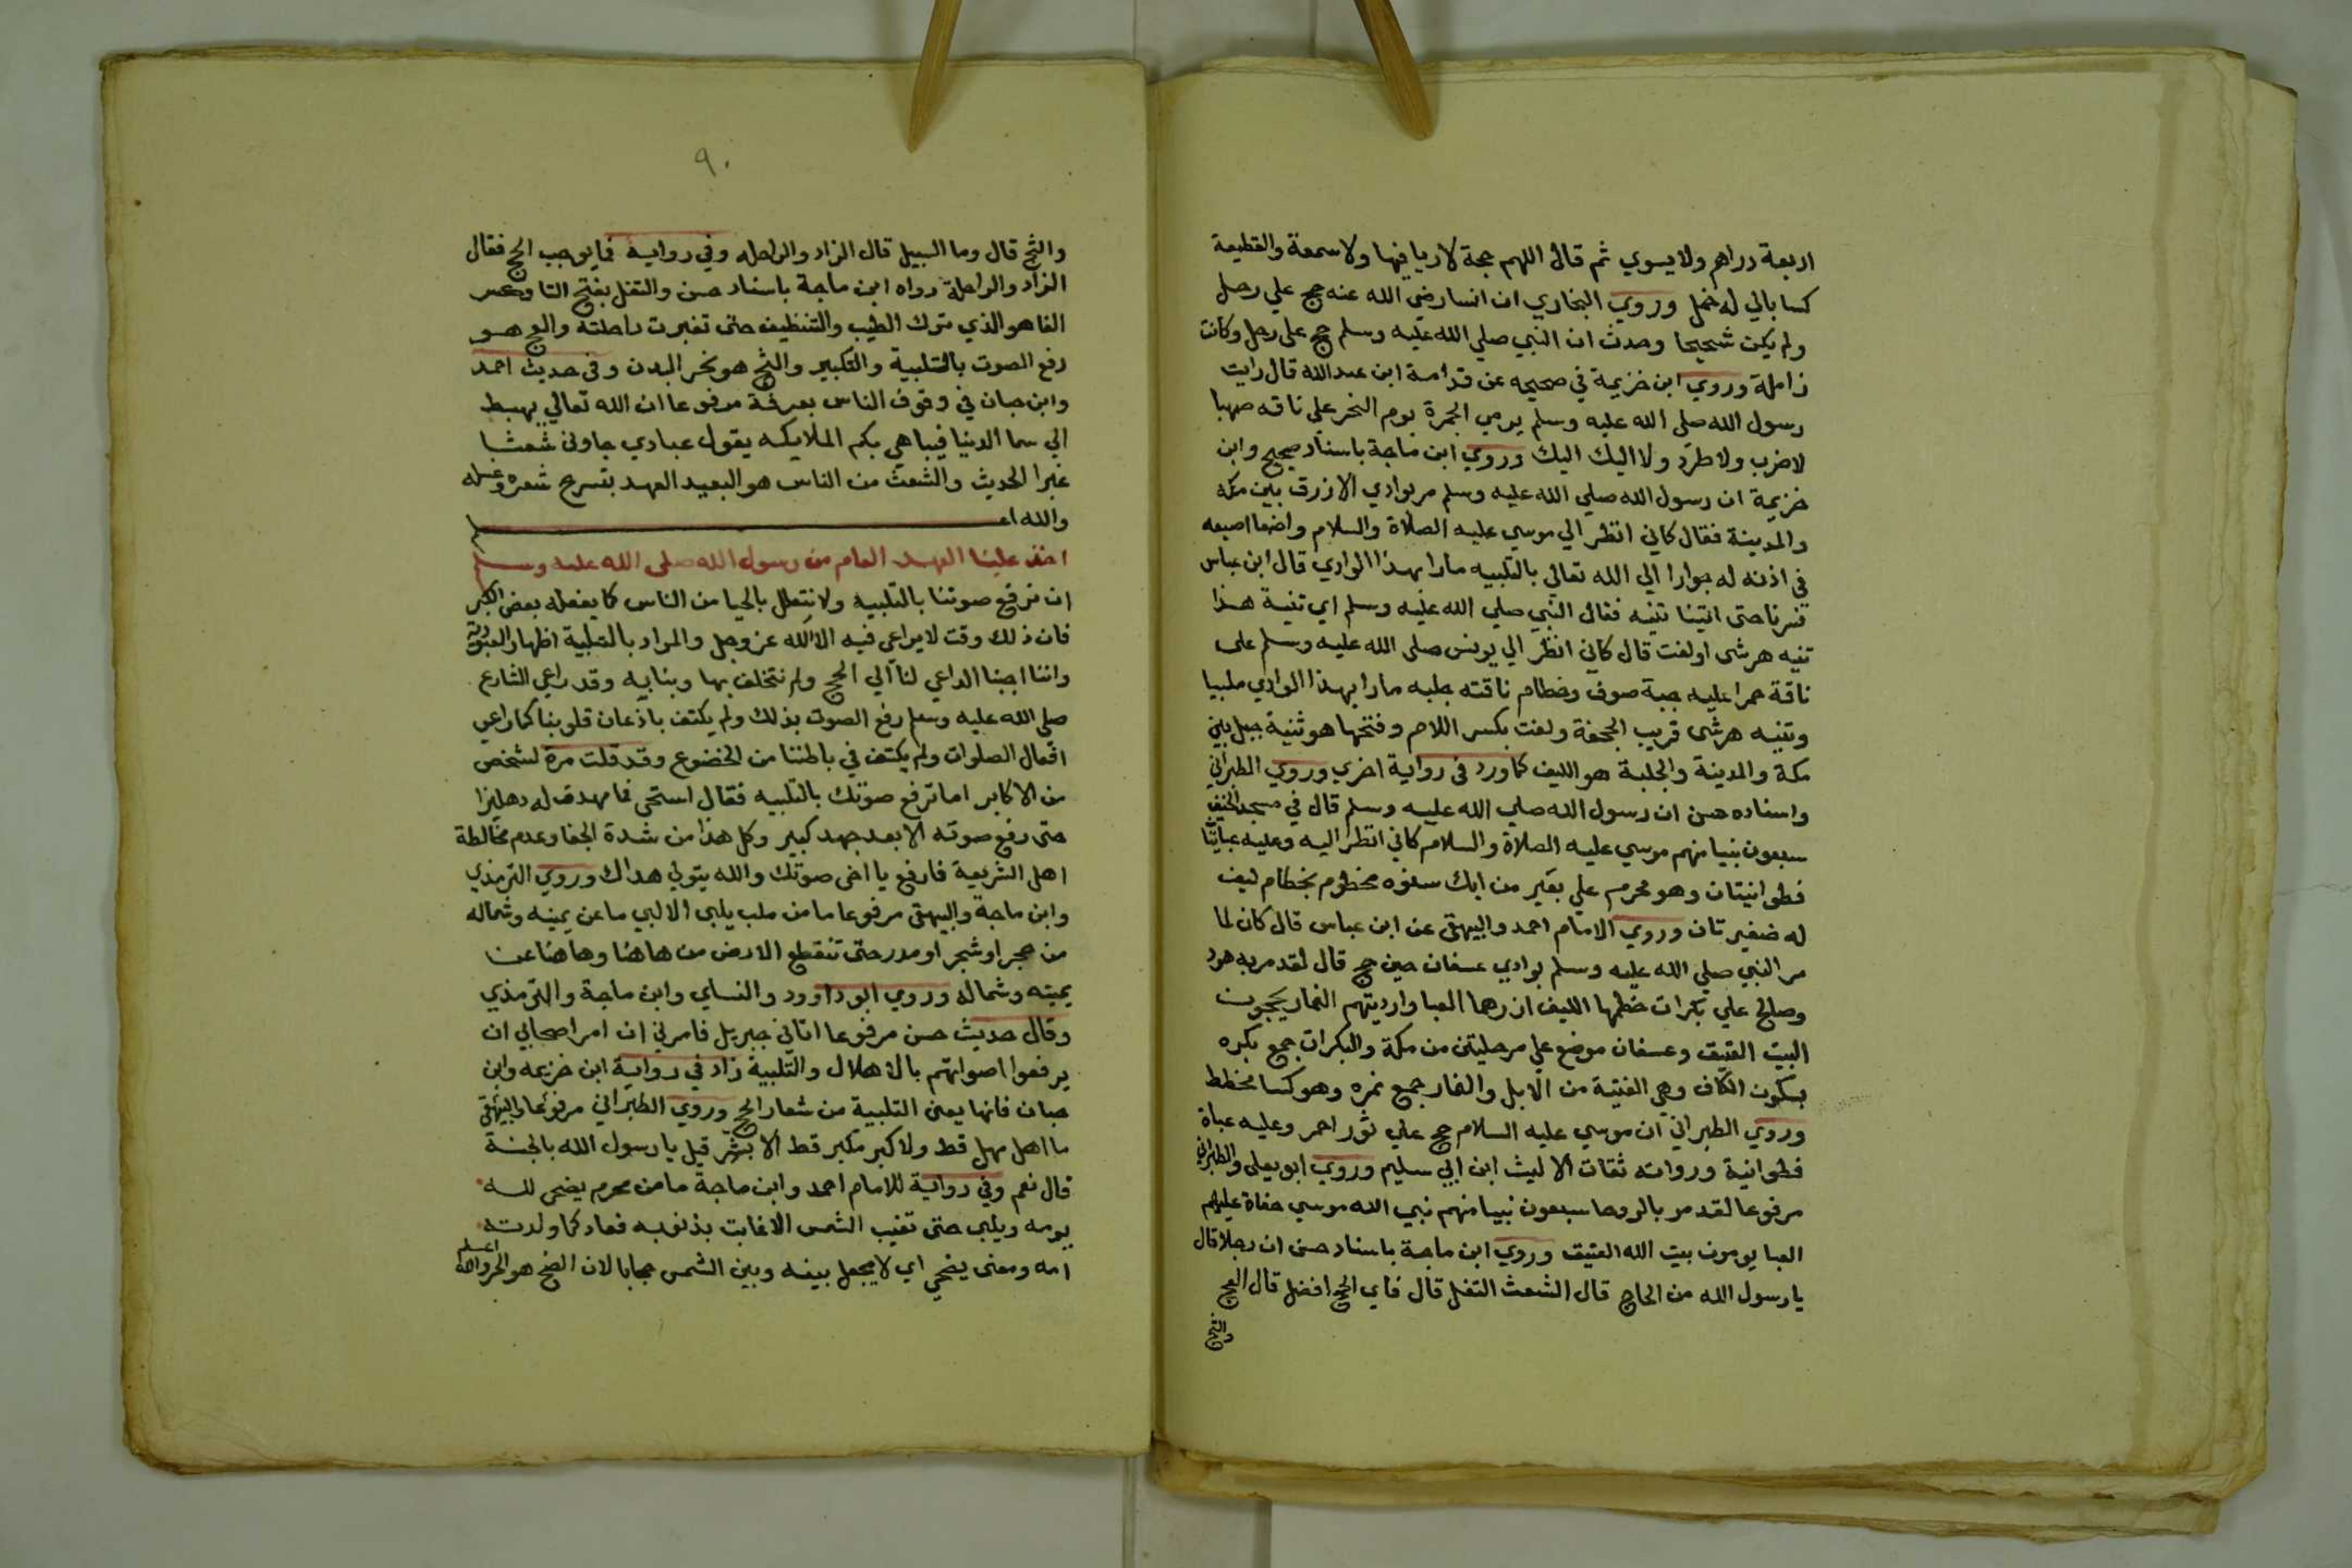 اربعة دراهم ولا يسوي ثم قال اللهم حجة لا ريا فيها ولا سمعة والقطيفة
كسا بالي له خمل وروي البخاري ان انسا رضي الله عنه حج علي رحل
ولم يكن شحيحا وحدث ان النبي صلي الله عليه وسلم حج علي رحل وكانت
زاملة وروي ابن خزيمة في صحيحه عن قدامة ابن عبد الله قال رايت
رسول الله صلي الله عليه وسلم يرمي الجمرة يوم النحر علي ناقه صهبا
لا ضرب ولا طرد ولا اليك اليك وروي ابن ماجة باسناد صحيح وابن
خزيمة ان رسول الله صلي الله عليه وسلم مر بوادي الازرق بين مكه
والمدينة فقال كاني انظر الي موسي عليه الصلاة والسلام واضعا اصبعه
في اذنه له جوارا الي الله تعالي بالتلبيه مارا بهذا الوادي قال ابن عباس
ثم سرنا حتى اتينا ثنيه فقال النبي صلي الله عليه وسلم اي ثنية هذا
ثنيه هرشى او لفت قال كاني انظر الي يونس صلي الله عليه وسلم على
ناقة حمرا عليه جبة صوف وخطام ناقته جلبه مارا بهذا الوادي ملبيا
وثنيه هرشى قريب الجحفة ولفت بكسر اللام وفتحها هو ثنية جبل بين
مكة والمدينة والجلبة هو الليف كما ورد في رواية اخري وروي الطبراني
واسناده حسن ان رسول الله صلي الله عليه وسلم قال في مسجد الخيف
سبعون نبيا منهم موسي عليه الصلاة والسلام كاني انظر اليه وعليه عبايتان
قطوانيتان وهو محرم علي بعير من ابل سنوه مخطوم بخطام ليف
له ضفيرتان وروي الامام احمد والبيهقي عن ابن عباس قال كان لما
مر النبي صلي الله عليه وسلم بوادي عسفان حين حج قال لقد مر به هود
وصالح علي بكرات خطمها الليف ازرهما العبا وارديتهم النمار يحجون
البيت العتيق وعسفان موضع علي مرحلتين من مكة والبكرات جمع بكره
بسكون الكاف وهي الفتية من الابل والنمار جمع نمره وهو كسا مخطط
وروي الطبراني ان موسي عليه السلام حج علي ثور احمر وعليه عباة
قطوانية ورواته ثقات الا ليث ابن ابي سليم وروي ابو يعلي والطبراني
مرفوعا لقد مر بالروحا سبعون نبيا منهم نبي الله موسي حفاة عليهم
العبا يومون بيت الله العتيق وروي ابن ماجة باسناد حسن ان رجلا قال
يا رسول الله من الحاج قال الشعث التفل قال فاي الحج افضل قال العج
والثج
٩٠
والثج قال وما السبيل قال الزاد والراحله وفي رواية فما يوجب الحج فقال
الزاد والراحلة رواه ابن ماجة باسناد حسن والتفل بفتح التا وكسر
الفا هو الذي ترك الطيب والتنظيف حتى تغيرت رائحته والعج هو
رفع الصوت بالتلبية والتكبير والثج هو نحر البدن وفي حديث احمد
وابن حبان في وقوف الناس بعرفة مرفوعا ان الله تعالي يهبط
الي سما الدنيا فيباهي بكم الملايكه يقول عبادي جاوني شعثا
غبرا الحديث والشعث من الناس هو البعيد العهد بتسريح شعره وغسله
والله اعلم
اخذ علينا العهد العام من رسول الله صلي الله عليه وسلم
ان نرفع صوتنا بالتلبيه ولا نتعلل بالحيا من الناس كما يفعله بعض الاكابر
فان ذلك وقت لا يراعي فيه الا الله عز وجل والمراد بالتلبية اظهار العبودية
واننا اجبنا الداعي لنا الي الحج ولم نتخلف بها وبنايه وقد راعي الشارع
صلي الله عليه وسلم رفع الصوت بذلك ولم يكتف باذعان قلوبنا كما راعي
افعال الصلوات ولم يكتف في باطننا من الخضوع وقد قلت مرة لشخص
من الاكابر اما ترفع صوتك بالتلبيه فقال استحى فما مهدت له دهليزا
حتى رفع صوته الا بعد جهد كبير وكل هذا من شدة الجفا وعدم مخالطة
اهل الشريعة فارفع يا اخي صوتك والله يتولي هداك وروي الترمذي
وابن ماجة والبيهقي مرفوعا ما من ملب يلبي الا لبي ما عن يمينه وشماله
من حجر او شجر او مدر حتى تنقطع الارض من هاهنا وهاهنا عن
يمينه وشماله وروي ابو داوود والنساي وابن ماجة والترمذي
وقال حديث حسن مرفوعا اتاني جبريل فامرني ان امر اصحابي ان
يرفعوا اصواتهم بالاهلال والتلبية زاد في رواية ابن خزيمه وابن
حبان فانها يعني التلبية من شعار الحج وروي الطبراني مرفوعا والبيهقي
ما اهل مهل قط ولا كبر مكبر قط الا بشر قيل يا رسول الله بالجنة
قال نعم وفي رواية للامام احمد وابن ماجة ما من محرم يضحى لله
يومه ويلبي حتى تغيب الشمس الا غابت بذنوبه فعاد كما ولدته
امه ومعنى يضحي اي لا يجعل بينه وبين الشمس حجابا لان الضح هو الحر والله اعلم